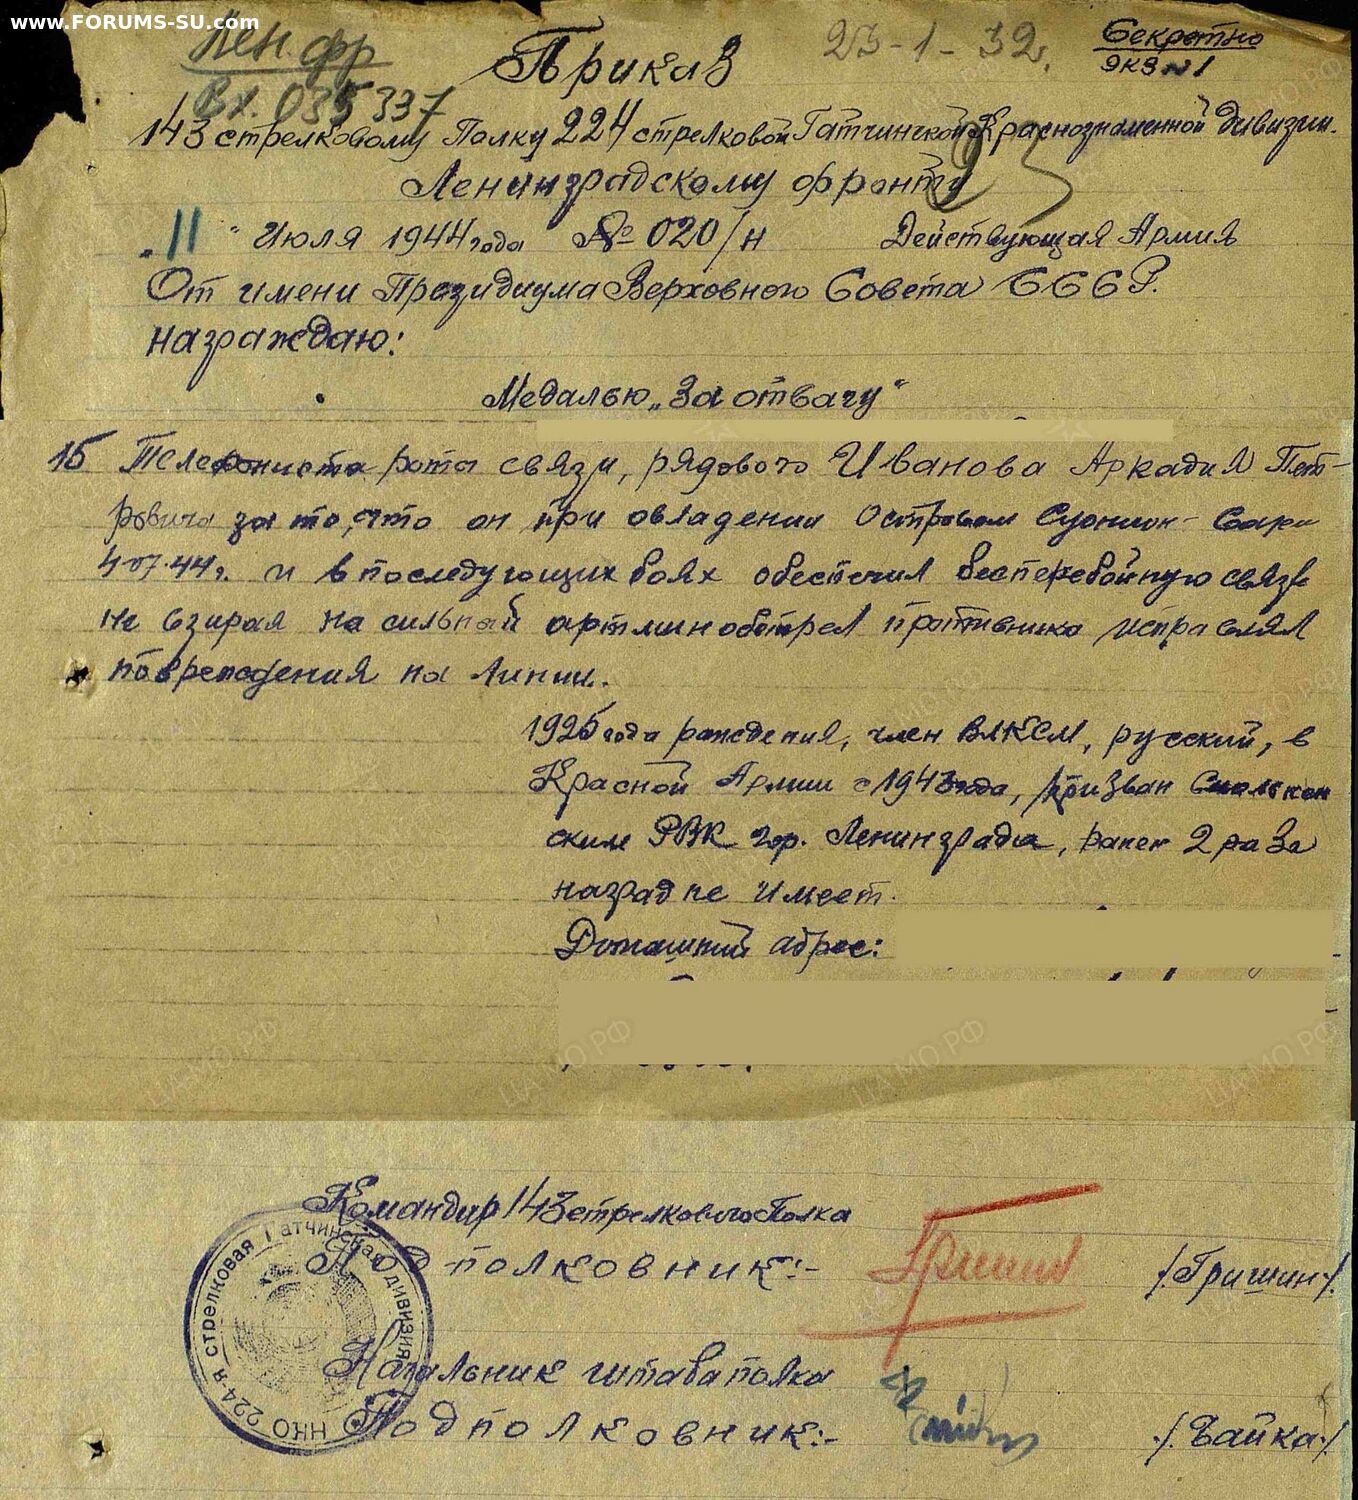 www.FORUMS-SU.com
Лен. фр
Вх. 035337
23-1-32.
Секретно
экз №1
Приказ
143 стрелковому Полку 224 стрелковой Гатчинской Краснознаменной дивизии.
Ленинградскому фронту
„11" Июля 1944 года № 020/н Действующая Армия
От имени Президиума Верховного Совета СССР.
награждаю:
Медалью „За отвагу"
15 Телефониста роты связи, рядового Иванова Аркадия Пет-
ровича за то, что он при овладении Островом Суонион-Сари
4.07.44г. и в последующих боях обеспечил бесперебойную связь
не взирая на сильный артминобстрел противника исправлял
повреждения на линии.
1925 года рождения, член ВЛКСМ, русский, в
Красной Армии с 1943 года, призван Смольнин
ским РВК гор. Ленинграда, ранен 2 раза
наград не имеет.
Домашний адрес:
Командир 143 стрелкового Полка
Подполковник:- Гришин /.Гришин./
Начальник штаба полка
Подполковник:- /.Чайка./
НКО 224-я стрелковая Гатчинская дивизия
ЦА МО РФ